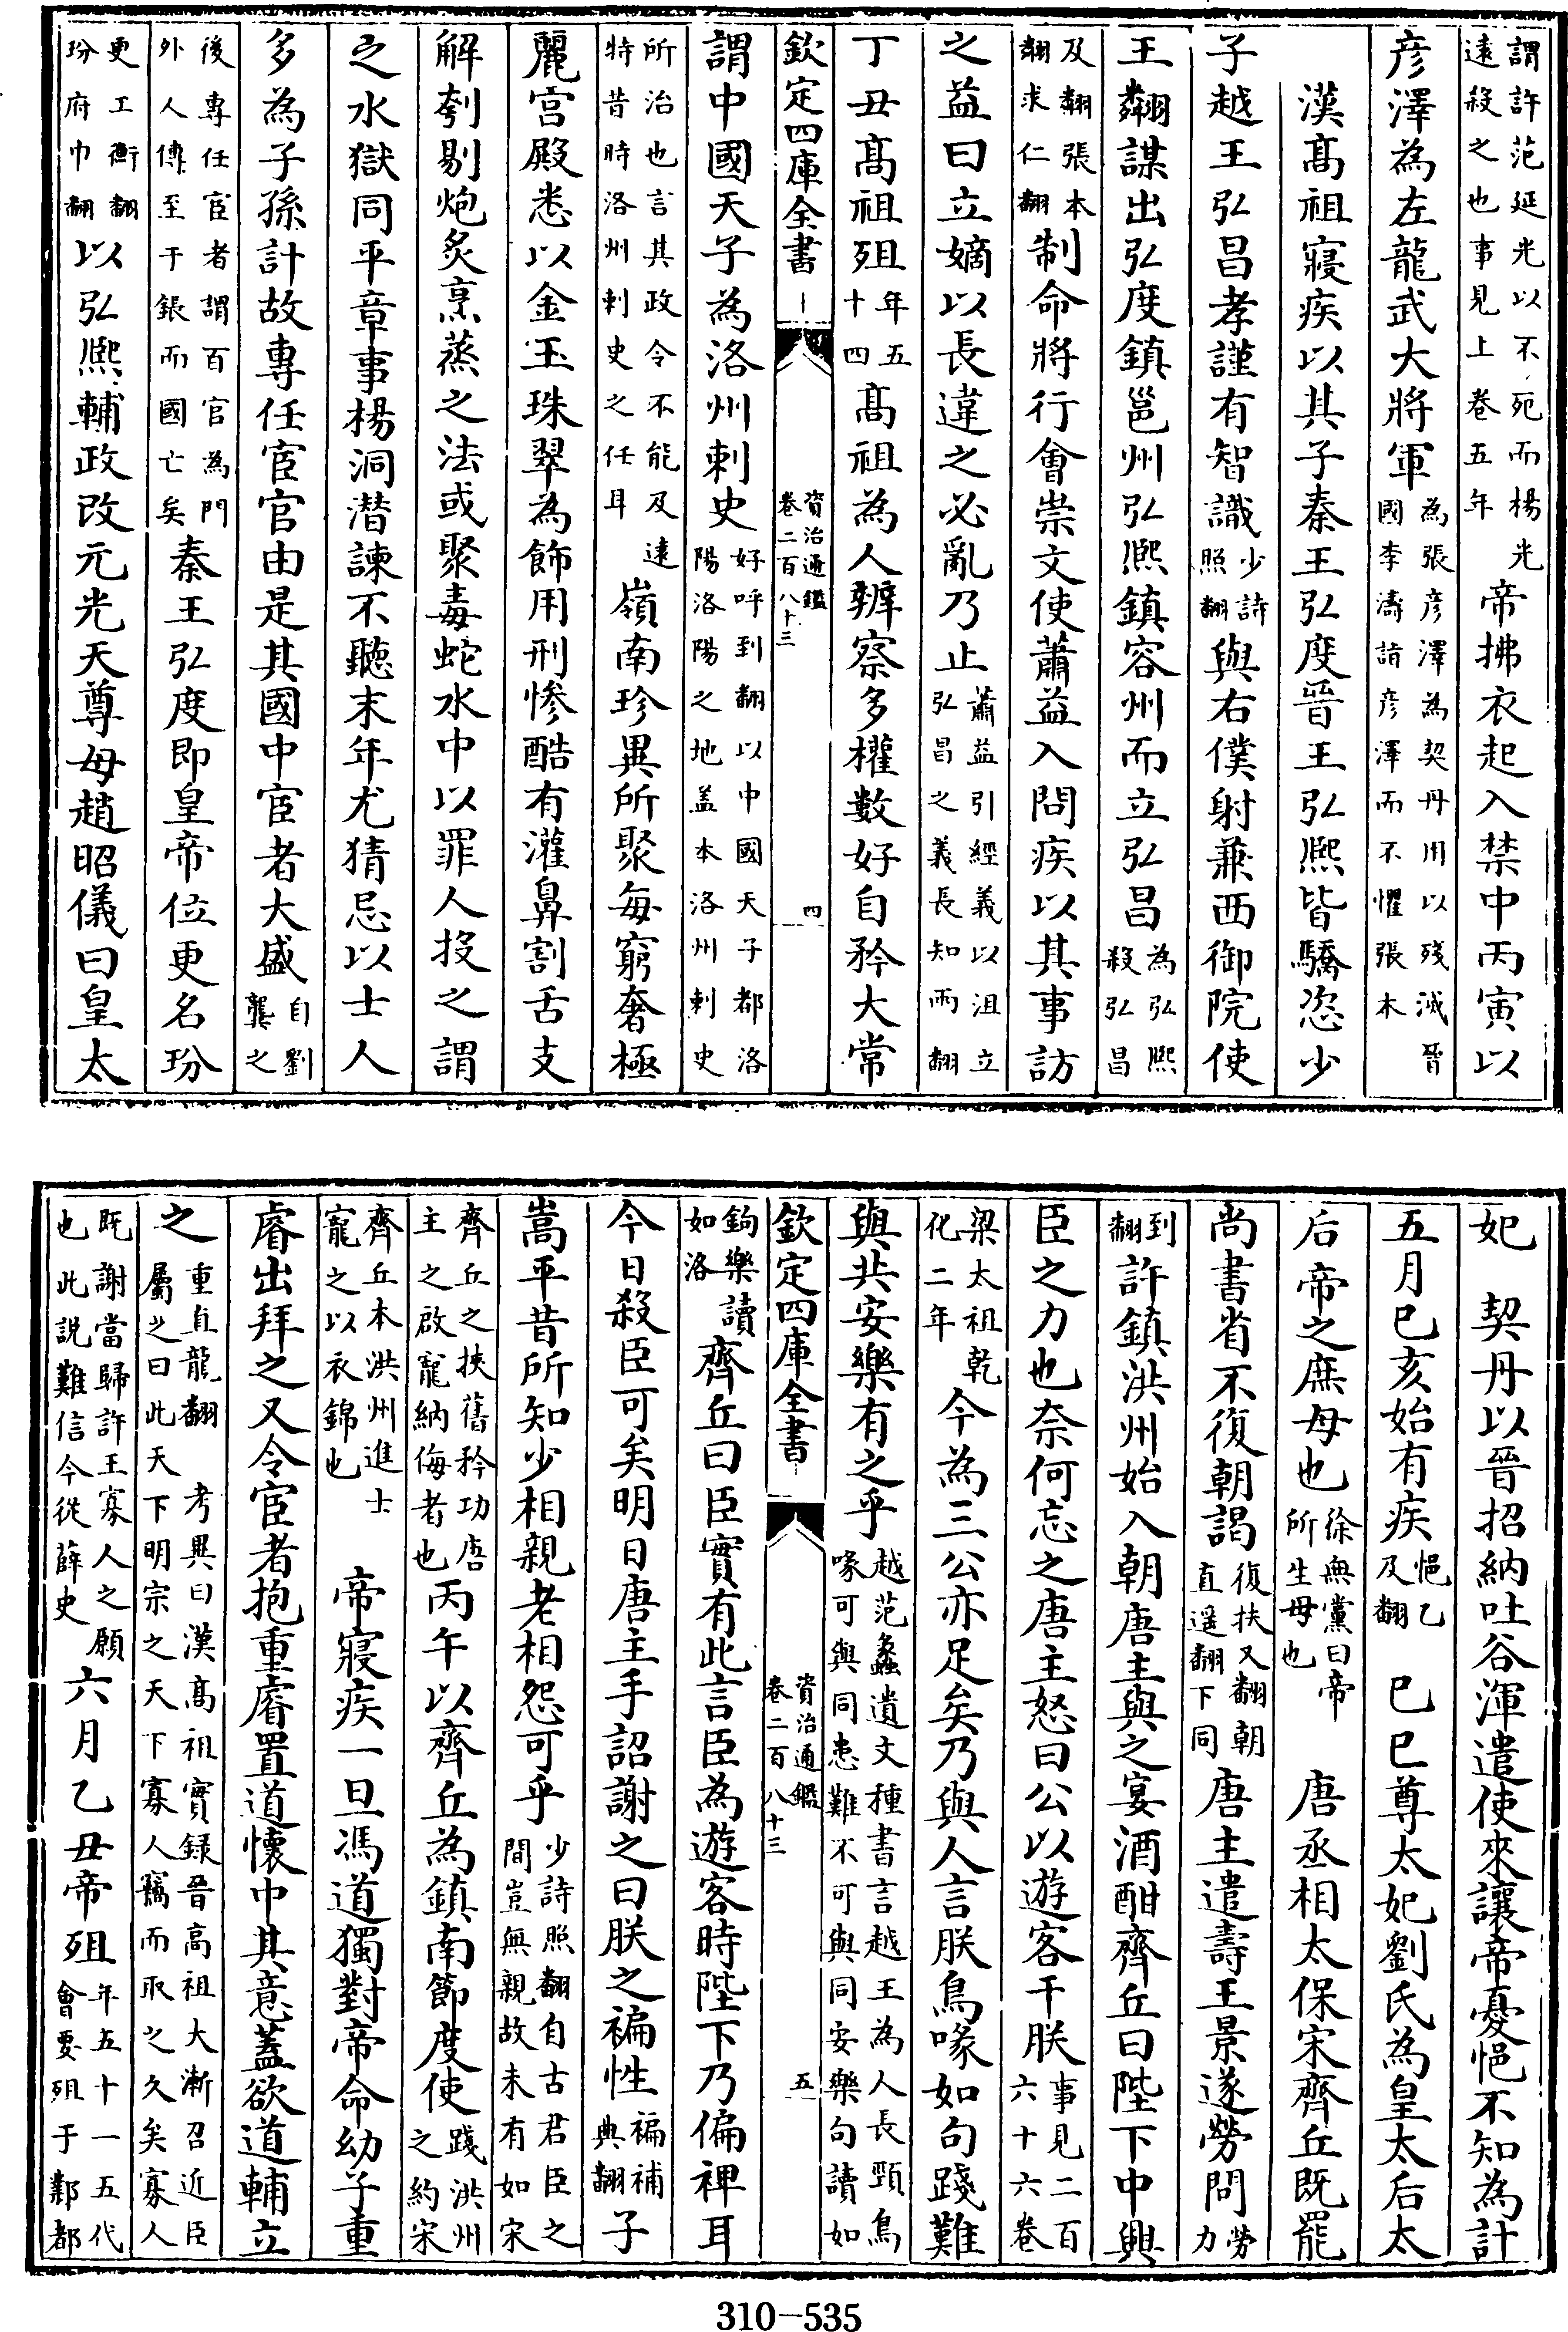 謂許范延光以不死而楊光
遠殺之也事見上卷五年
帝拂衣起入禁中丙寅以
彦澤為左龍武大將軍
為張彦澤為契丹用以殘滅晉
國李濤詣彦澤而不懼張本
漢髙祖寢疾以其子秦王弘度晉王弘熙皆驕恣少
子越王弘昌孝謹有智識
少詩
照翻
與右僕射兼西御院使
王翷謀出弘度鎮邕州弘熙鎮容州而立弘昌
為弘熙
殺弘昌
及翷張本
翷求仁翻
制命將行㑹崇文使蕭益入問疾以其事訪
之益曰立嫡以長違之必亂乃止
蕭益引經義以沮立
弘昌之義長知兩翻
丁丑髙祖殂
年五
十四
髙祖為人辨察多權數好自矜大常
欽定四庫全書
資治通鑑
卷二百八十三
四
謂中國天子為洛州刺史
好呼到翻以中國天子都洛
陽洛陽之地盖本洛州刺史
所治也言其政令不能及遠
特昔時洛州刺史之任耳
嶺南珍異所聚毎窮奢極
麗宫殿悉以金玉珠翠為飾用刑慘酷有灌鼻割舌支
解刳剔炮炙烹蒸之法或聚毒蛇水中以罪人投之謂
之水獄同平章事楊洞潛諫不聽末年尤猜忌以士人
多為子孫計故專任宦官由是其國中宦者大盛
自劉
龑之
後專任宦者謂百官為門
外人傳至于鋹而國亡矣
秦王弘度即皇帝位更名玢
更工衡翻
玢府巾翻
以弘熙輔政改元光天尊母趙昭儀曰皇太
妃 契丹以晉招納吐谷渾遣使來讓帝憂悒不知為計
五月已亥始有疾
悒乙
及翻
已巳尊太妃劉氏為皇太后太
后帝之庶母也
徐無黨曰帝
所生母也
唐丞相太保宋齊丘既罷
尚書省不復朝謁
復扶又翻朝
直遥翻下同
唐主遣壽王景遂勞問
勞力
到翻
許鎮洪州始入朝唐主與之宴酒酣齊丘曰陛下中興
臣之力也奈何忘之唐主怒曰公以遊客干朕
事見二百
六十六卷
梁太祖乾
化二年
今為三公亦足矣乃與人言朕鳥喙如句踐難
與共安樂有之乎
越范蠡遺文種書言越王為人長頸鳥
喙可與同患難不可與同安樂句讀如
欽定四庫全書
資治通鑑
卷二百八十三
五
鉤樂讀
如洛
齊丘曰臣實有此言臣為遊客時陛下乃偏裨耳
今日殺臣可矣明日唐主手詔謝之曰朕之褊性
褊補
典翻
子
嵩平昔所知少相親老相怨可乎
少詩照翻自古君臣之
間豈無親故未有如宋
齊丘之挾舊矜功唐
主之啟寵納侮者也
丙午以齊丘為鎮南節度使
踐洪州
之約宋
齊丘本洪州進士
寵之以衣錦也
帝寢疾一旦馮道獨對帝命幼子重
睿出拜之又令宦者抱重睿置道懷中其意蓋欲道輔立
之
重直龍翻 考異曰漢髙祖實録晉高祖大漸召近臣
屬之曰此天下明宗之天下寡人竊而取之久矣寡人
既謝當歸許王寡人之願
也此説難信今從薛史
六月乙丑帝殂
年五十一五代
會要殂于鄴都
310-535